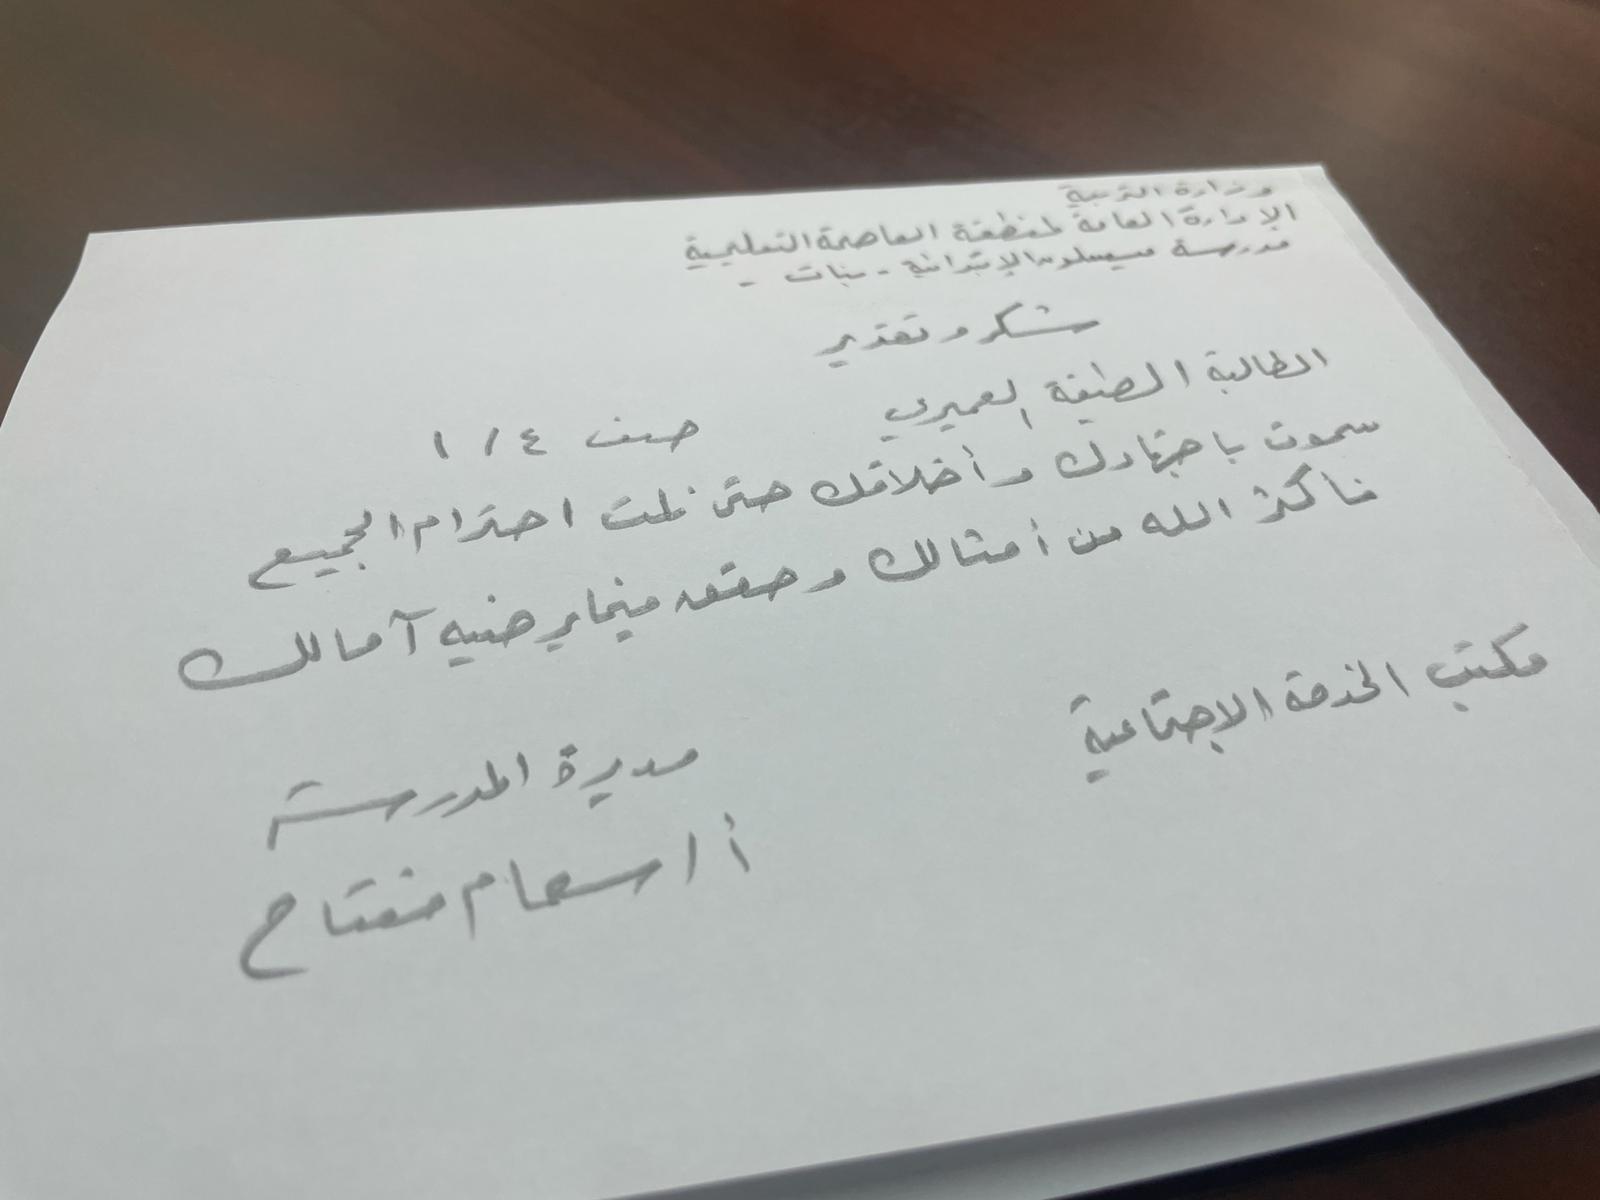 وزارة التربية
الإدارة العامة لمنطقة العاصمة التعليمية
مدرسة ميسلون الإبتدائية - بنات -
شكر و تقدير
الطالبة لطيفة العميري صف ٤ / ١
سموت باجتهادك وأخلاقك حتى نلت احترام الجميع
فأكثر الله من أمثالك وحقق فيما يرضيه آمالك
مكتب الخدمة الاجتماعية
مديرة المدرسة
أ / سهام مفتاح